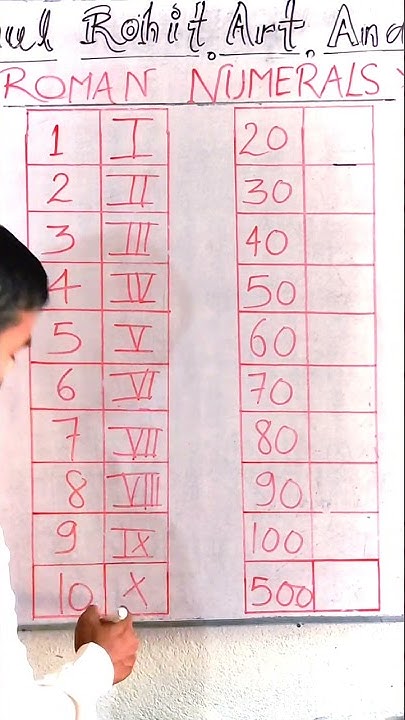 Rohit Art And
ROMAN NUMERALS
1 I 20
2 II 30
3 III 40
4 IV 50
5 V 60
6 VI 70
7 VII 80
8 VIII 90
9 IX 100
10 X 500